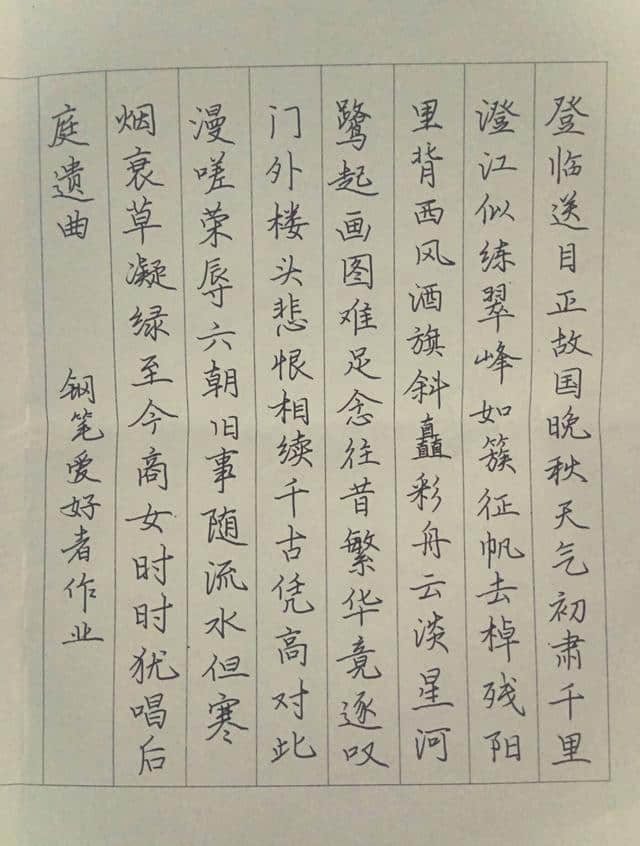 登临送目正故国晚秋天气初肃千里
澄江似练翠峰如簇征帆去棹残阳
里背西风酒旗斜矗彩舟云淡星河
鹭起画图难足念往昔繁华竟逐叹
门外楼头悲恨相续千古凭高对此
漫嗟荣辱六朝旧事随流水但寒
烟衰草凝绿至今商女时时犹唱后
庭遗曲
钢笔爱好者作业